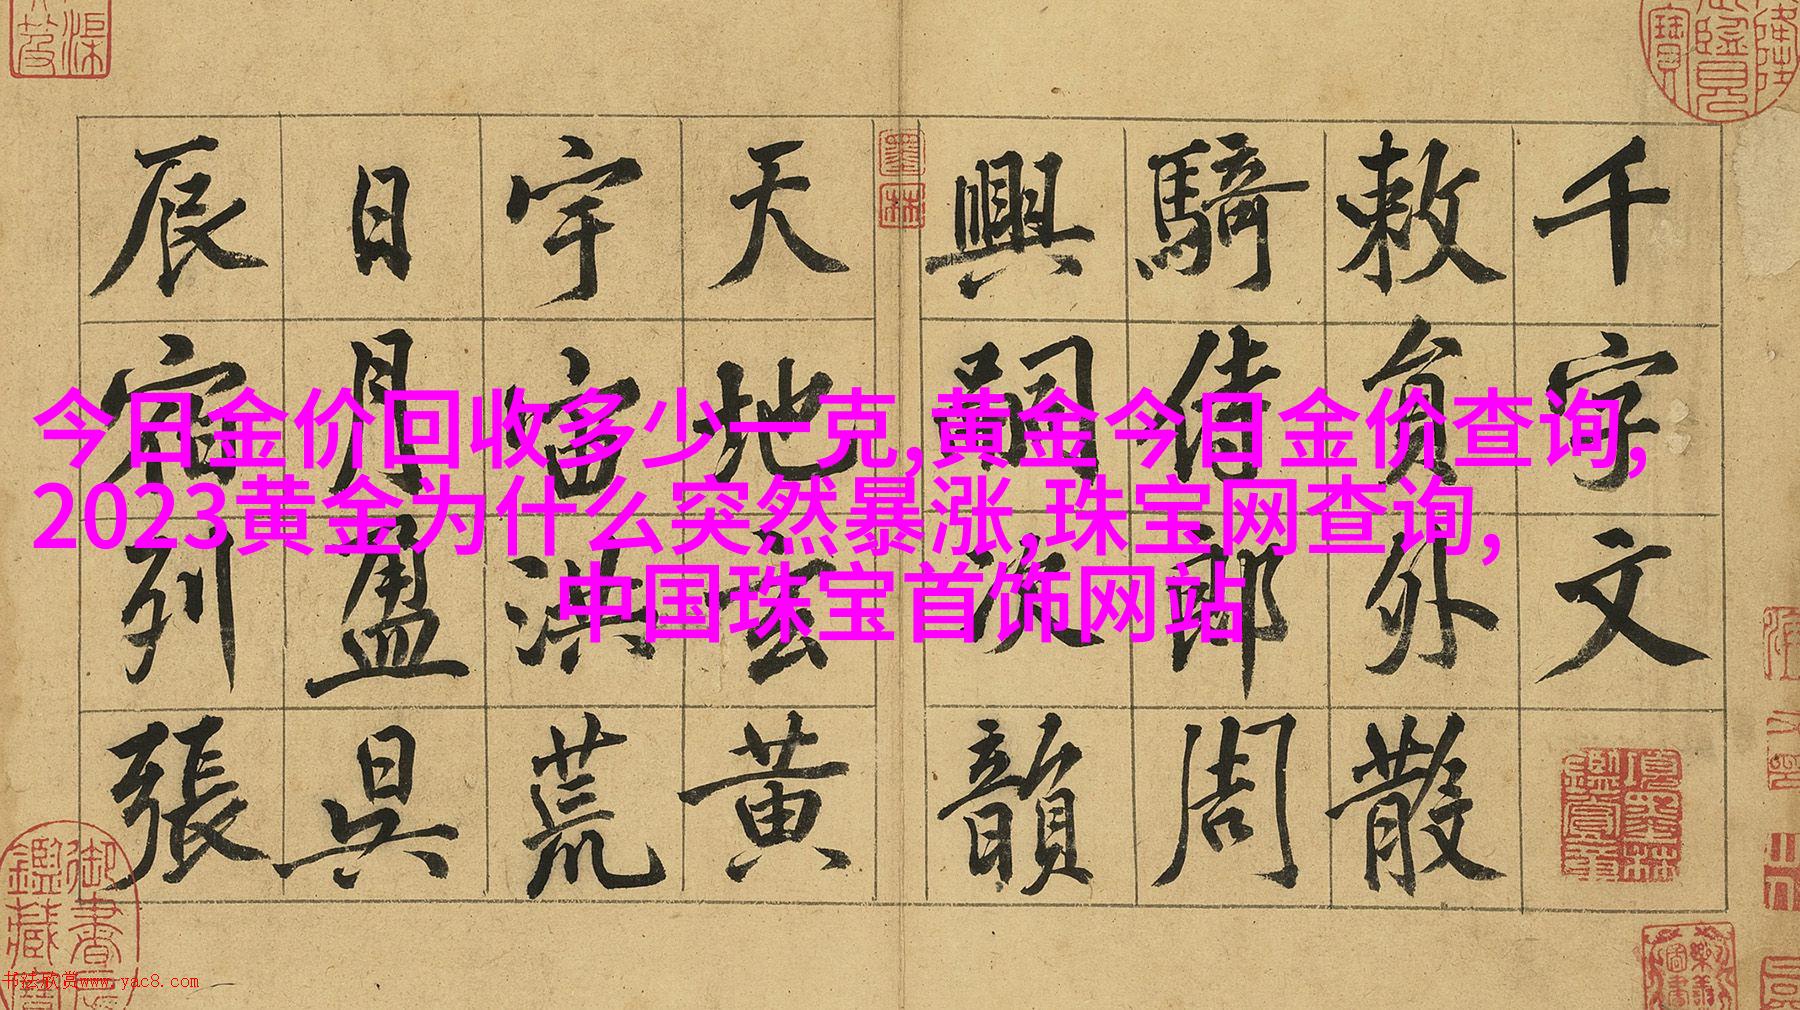 今日金价回收多少一克,黄金今日金价查询,
2023黄金为什么突然暴涨,珠宝网查询,
中国珠宝首饰网站
千字文
敕員外散
騎侍郎周
興嗣次韻
天地玄黄
宇宙洪荒
日月盈昃
辰宿列張
墨林
书法欣赏www.yac8.com